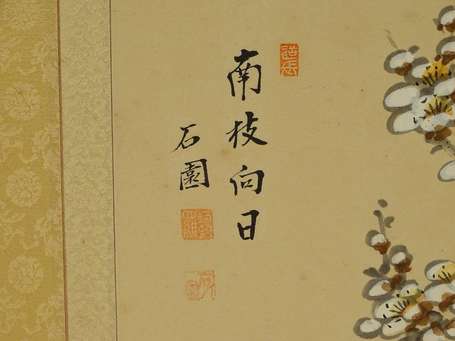 南枝向日
石園